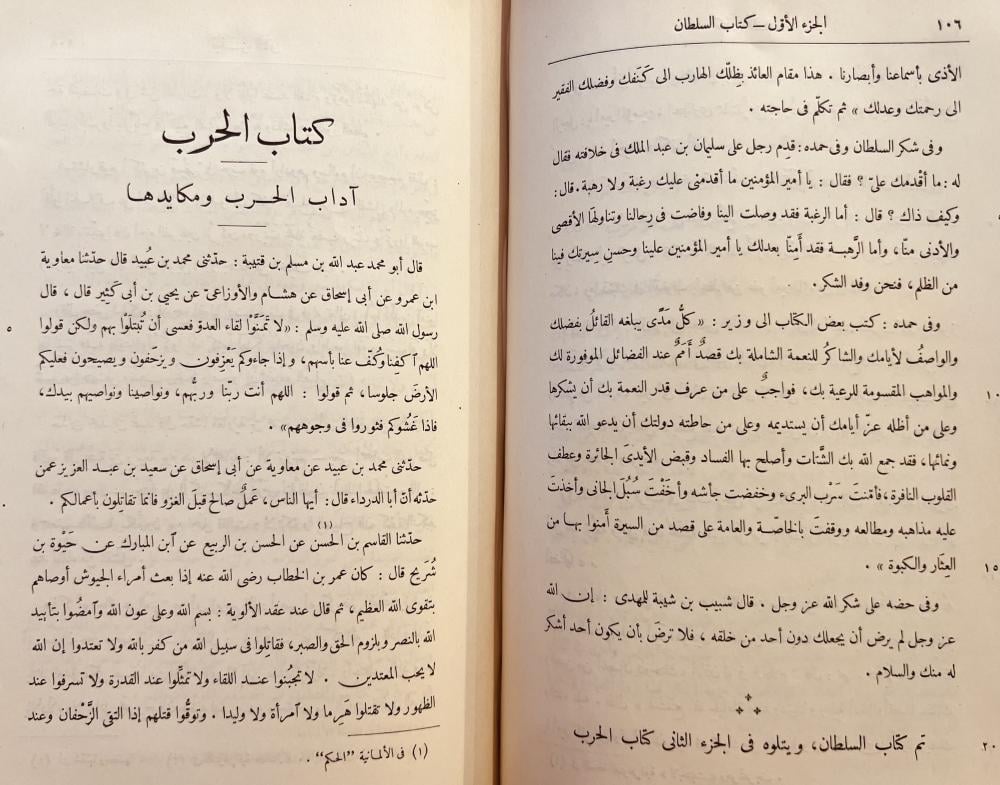 ١٠٦
الجزء الأول — كتاب السلطان
الأذى بأسماعنا وأبصارنا . هذا مقام العائذ بِظِلّك الهارب الى كَنَفك وفضلك الفقير
الى رحمتك وعدلك » ثم تكلّم فى حاجته .
وفى شكر السلطان وفى حمده : قدِم رجل على سليمان بن عبد الملك فى خلافته فقال
له : ما أقْدمك علىّ ؟ فقال : يا أمير المؤمنين ما أقدمنى عليك رغبة ولا رهبة . قال :
وكيف ذاك ؟ قال : أما الرغبة فقد وصلت الينا وفاضت فى رِحالنا وتناولها الأقصى
والأدنى منّا ، وأما الرَّهبة فقد أَمِنّا بعدلك يا أمير المؤمنين علينا وحسنِ سِيرتك فينا
من الظلم ، فنحن وفد الشكر .
وفى حمده : كتب بعض الكتاب الى وزير : « كلُّ مَدًى يبلغه القائلُ بفضلك
والواصفُ لأيامك والشاكرُ للنعمة الشاملة بك قصدٌ أَمَمٌ عند الفضائل الموفورة لك
والمواهب المقسومة للرعية بك ، فواجبٌ على من عرف قدر النعمة بك أن يشكرها
١٠
وعلى من أظله عزّ أيامك أن يستديمه وعلى من حاطته دولتك أن يدعو الله ببقائها
ونمائها ، فقد جمع الله بك الشَّتات وأصلح بها الفساد وقبض الأيدىَ الجائرة وعطف
القلوب النافرة ، فأمّنتَ سَرْب البرىء وخفضت جأشه وأخَفْتَ سُبُلَ الجانى وأخذتَ
عليه مذاهبه ومطالعه ووقفتَ بالخاصّة والعامة على قصد من السيرة أَمنوا بها من
العِثَار والكبوة » .
١٥
وفى حضه على شكر الله عز وجل . قال شبيب بن شيبة للمهدى : إن الله
عز وجل لم يرض أن يجعلك دون أحد من خلقه ، فلا ترضَ بأن يكون أحد أشكر
له منك والسلام .
تم كتاب السلطان ، ويتلوه فى الجزء الثانى كتاب الحرب
٢٠
كتاب الحرب
آداب الحرب ومكايدها
قال أبو محمد عبد الله بن مسلم بن قتيبة : حدّثنى محمد بن عُبيد قال حدّثنا معاوية
ابن عمرو عن أبى إسحاق عن هشام والأوزاعىّ عن يحيى بن أبى كَثِير قال ، قال
رسول الله صلى الله عليه وسلم : «لا تَمَنَّوْا لقاء العدوّ فعسى أن تُبتلَوْا بهم ولكن قولوا
٥
اللهم ٱكفِنا وكُفّ عنا بأسهم ، وإذا جاءوكم يَعْزِفون ويزحَفون ويصيحون فعليكم
الأرضَ جلوسا ، ثم قولوا : اللهم أنت ربّنا وربُّهم ، ونواصينا ونواصيهم بيدك ،
فاذا غَشُوكم فثوروا فى وجوههم» .
حدّثنى محمد بن عبيد عن معاوية عن أبى إسحاق عن سعيد بن عبد العزيز عمن
حدّثه أنّ أبا الدرداء قال : أيها الناس ، عَمَلٌ صالح قبلَ الغزو فانما تقاتِلون بأعمالكم .
حدّثنا القاسم بن الحسن عن الحسن بن الربيع عن ٱبن المبارك عن حَيْوة بن (١)
شُرَيح قال : كان عمر بن الخطاب رضى الله عنه إذا بعث أمراء الجيوش أوصاهم
بتقوى الله العظيم ، ثم قال عند عقد الألوية : بسم الله وعلى عون الله وٱمضُوا بتأييد
الله بالنصر وبلزوم الحق والصبر ، فقاتِلوا فى سبيل الله من كفر بالله ولا تعتدوا إن الله
لا يحب المعتدين . لا تجبُنوا عند اللقاء ولا تمثِّلوا عند القدرة ولا تسرفوا عند
الظهور ولا تقتلوا هَرِما ولا ٱمرأة ولا وليدا . وتوقَّوا قتلهم إذا التقى الزَّحْفان وعند
(١) فى الألمانية "الحكم" .